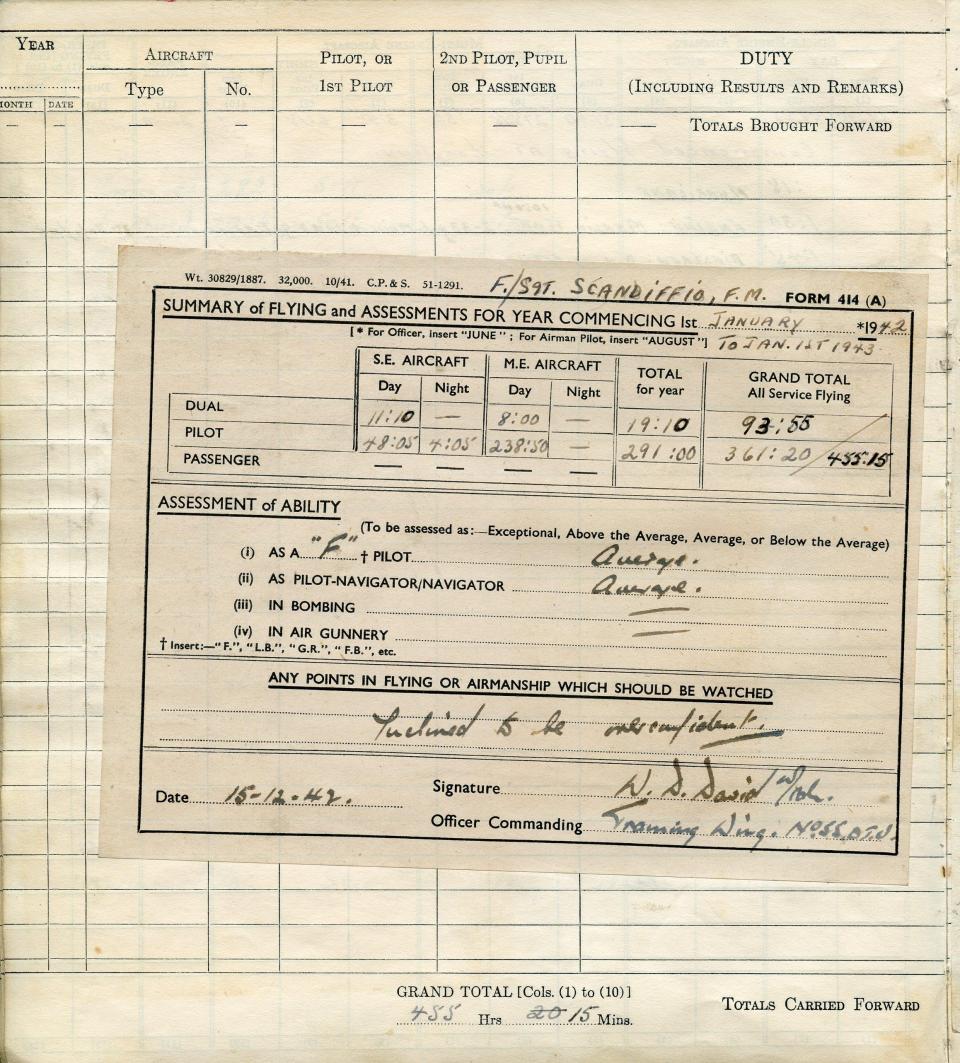 YEAR AIRCRAFT PILOT, OR 2ND PILOT, PUPIL DUTY
Type No. 1ST PILOT OR PASSENGER (INCLUDING RESULTS AND REMARKS)
MONTH DATE
— — — — — —— TOTALS BROUGHT FORWARD
Wt. 30829/1887. 32,000. 10/41. C.P. & S. 51-1291. F./SGT. SCANDIFFIO, F.M. FORM 414 (A)
SUMMARY of FLYING and ASSESSMENTS FOR YEAR COMMENCING 1st JANUARY *1942
[* For Officer, insert "JUNE" ; For Airman Pilot, insert "AUGUST"] TO JAN. 1ST 1943.
S.E. AIRCRAFT M.E. AIRCRAFT TOTAL for year GRAND TOTAL All Service Flying
Day Night Day Night
DUAL 11:10 — 8:00 — 19:10 93:55
PILOT 48:05 4:05 238:50 — 291:00 361:20 / 455:15
PASSENGER — — — —
ASSESSMENT of ABILITY
(To be assessed as:—Exceptional, Above the Average, Average, or Below the Average)
(i) AS A "F" † PILOT Average.
(ii) AS PILOT-NAVIGATOR/NAVIGATOR Average.
(iii) IN BOMBING —
(iv) IN AIR GUNNERY —
† Insert:—"F.", "L.B.", "G.R.", "F.B.", etc.
ANY POINTS IN FLYING OR AIRMANSHIP WHICH SHOULD BE WATCHED
Inclined to be overconfident.
Date 15-12-42. Signature W. D. David
Officer Commanding Training Wing. No 55 O.T.U.
GRAND TOTAL [Cols. (1) to (10)]
455 Hrs 20 15 Mins. TOTALS CARRIED FORWARD